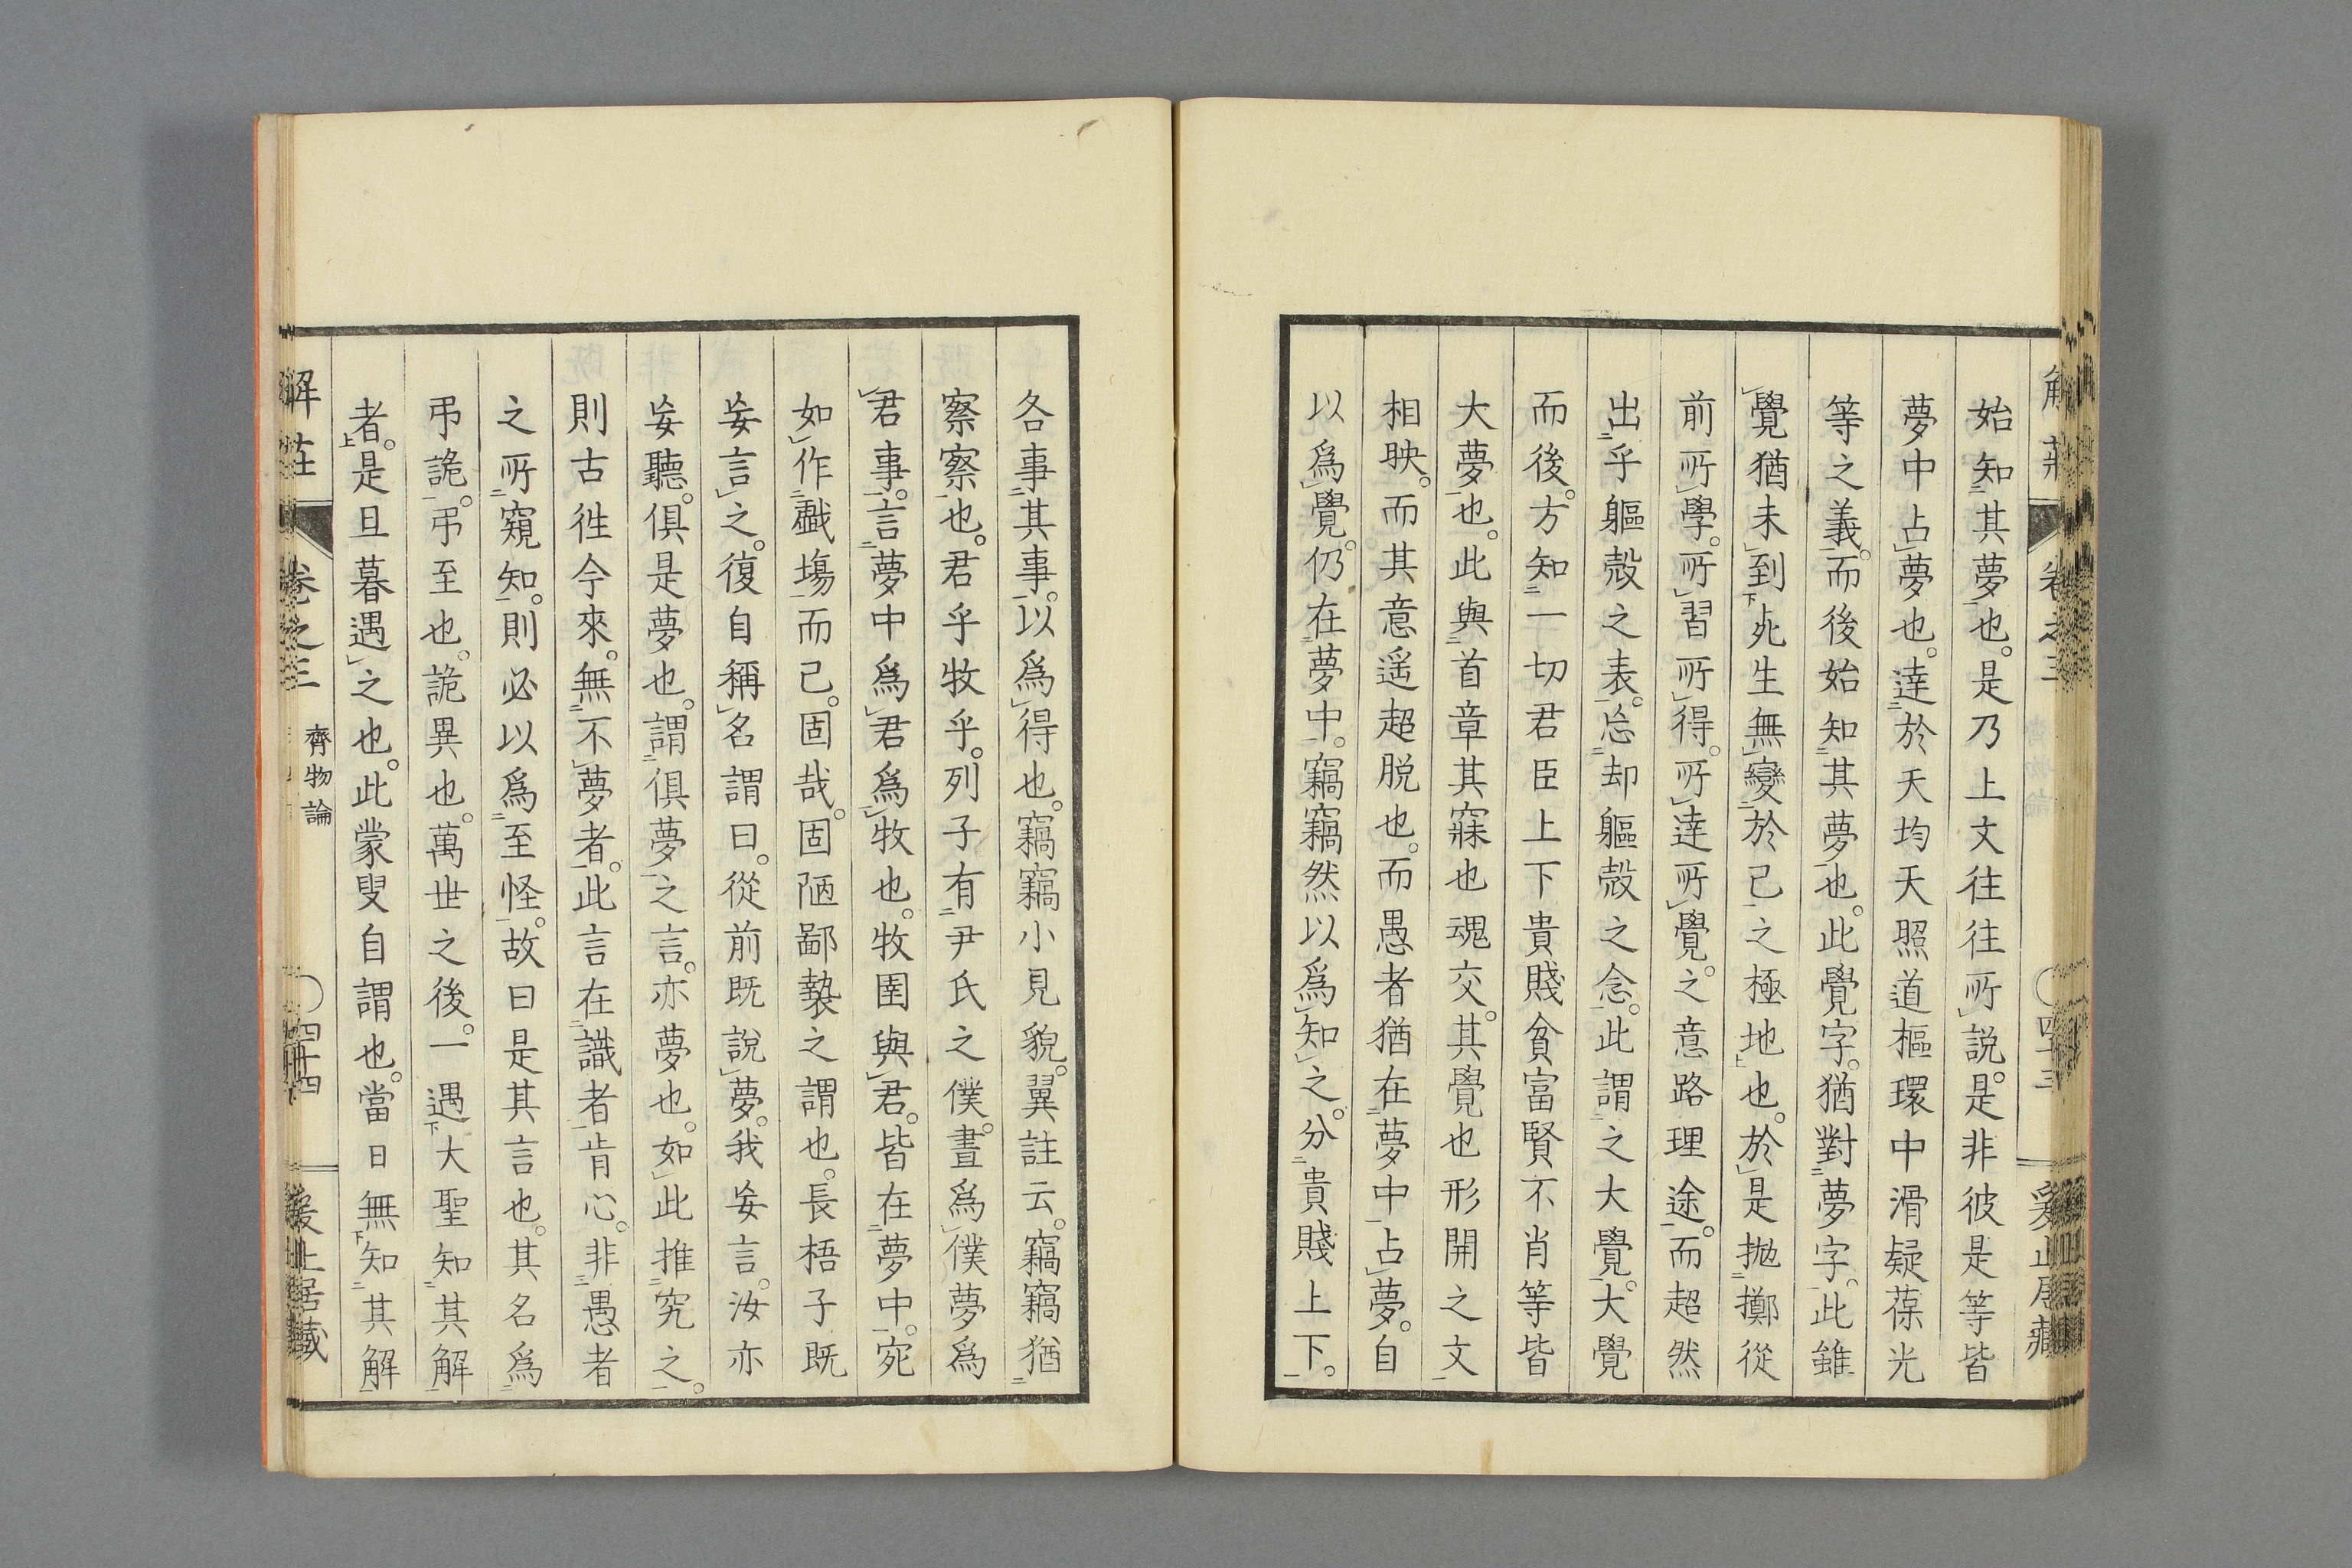 始知其夢也。是乃上文往往所說。是非彼是等皆
夢中占夢也。達於天均天照道樞環中滑疑葆光
等之義。而後始知其夢也。此覺字。猶對夢字。此雖
覺猶未到死生無變於己之極地也。於是抛擲從
前所學。所習所得。所達所覺。之意路理途。而超然
出乎軀殼之表。忘却軀殼之念。此謂之大覺。大覺
而後。方知一切君臣上下貴賤貧富賢不肖等皆
大夢也。此與首章其寐也魂交。其覺也形開之文
相映。而其意遥超脱也。而愚者猶在夢中占夢。自
以爲覺。仍在夢中。竊竊然以爲知之。分貴賤上下。
解莊 卷之三 齊物論 四十四
各事其事。以爲得也。竊竊小見貌。翼註云。竊竊猶
察察也。君乎牧乎。列子有尹氏之僕。晝爲僕夢爲
君事。言夢中爲君爲牧也。牧圉與君。皆在夢中。宛
如作戲場而已。固哉。固陋鄙褻之謂也。長梧子既
妄言之。復自稱名謂曰。從前既說夢。我妄言。汝亦
妄聽。俱是夢也。謂俱夢之言。亦夢也。如此推究之。
則古徃今來。無不夢者。此言在識者肯心。非愚者
之所窺知。則必以爲至怪。故曰是其言也。其名爲
弔詭。弔至也。詭異也。萬世之後。一遇大聖知其解
者。是旦暮遇之也。此蒙叟自謂也。當日無知其解